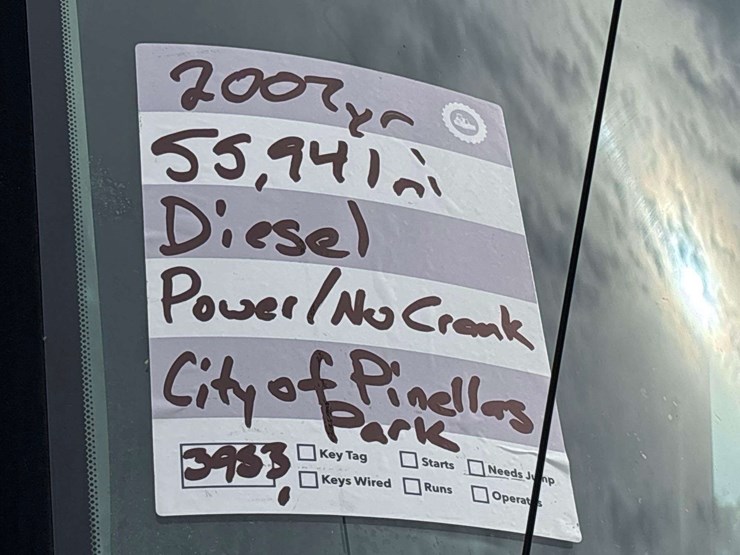 2007yr
55,941mi
Diesel
Power/No Crank
City of Pinellas
Park
3983
Key Tag
Starts
Needs Jump
Keys Wired
Runs
Operates